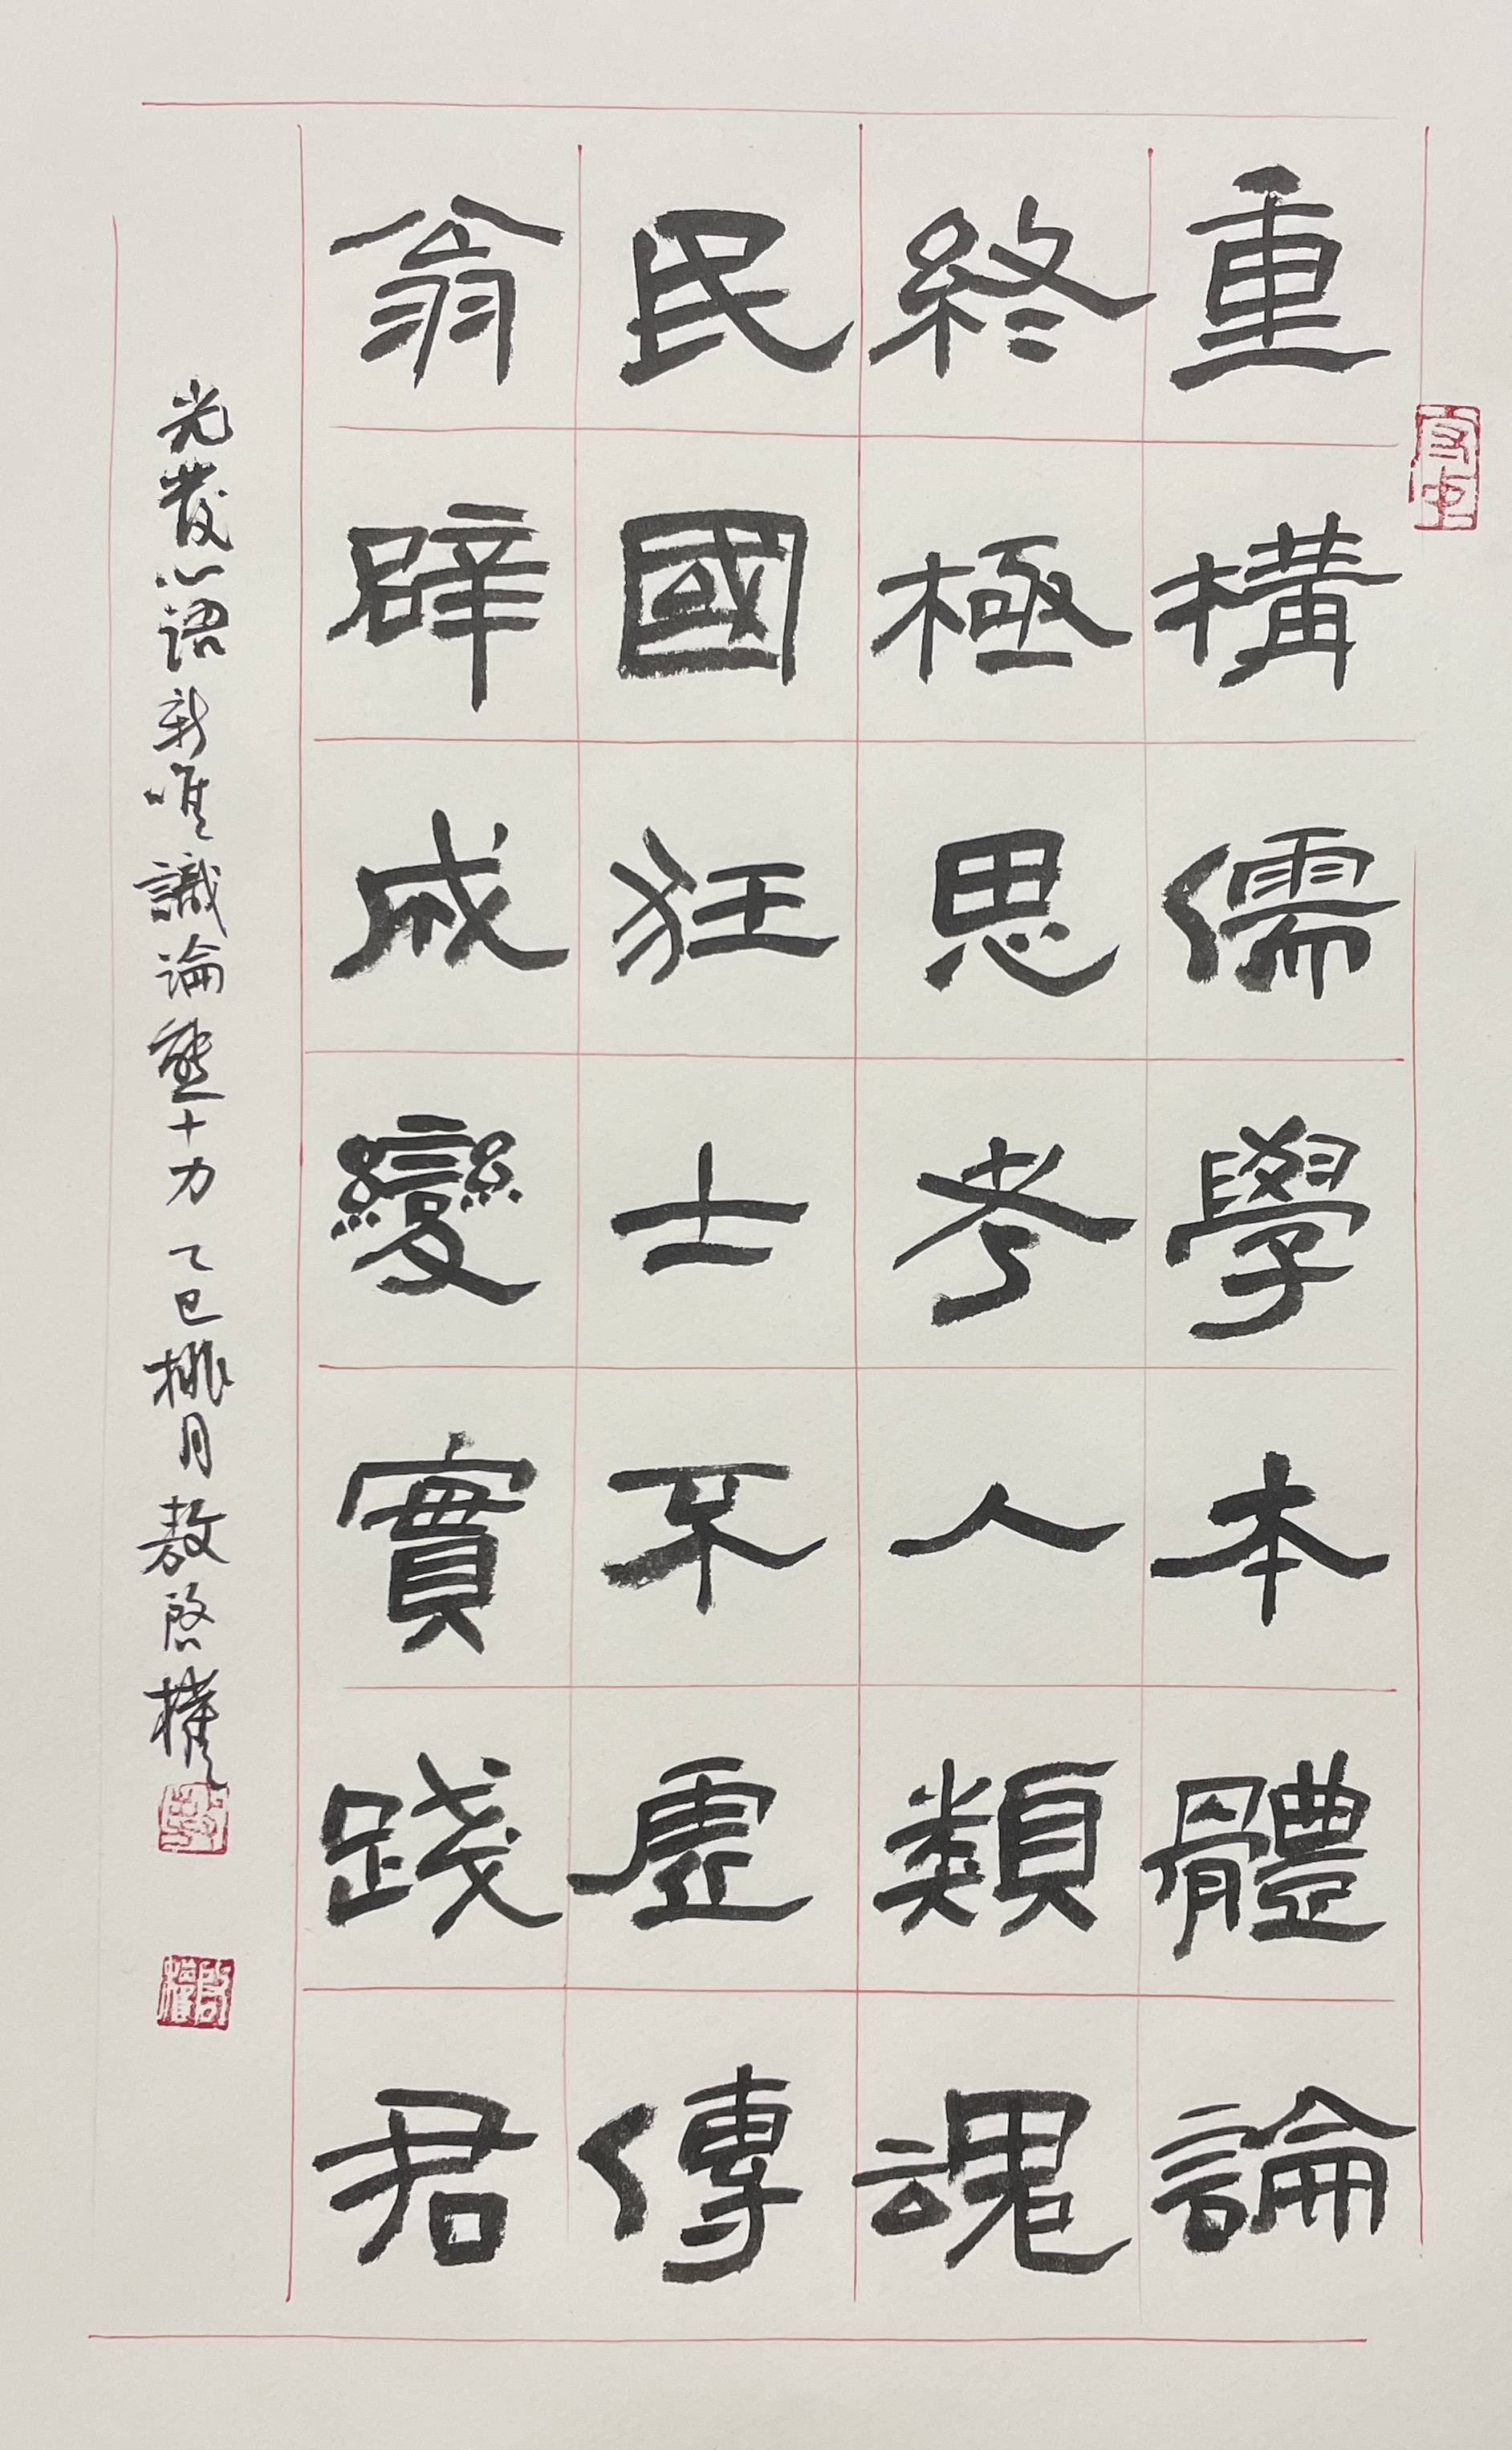 重構儒學本體論
終極思考人類魂
民國狂士不虛傳
翁辟成變實踐君
光發心語新唯識論熊十力乙巳桃月敖啓權
啟權